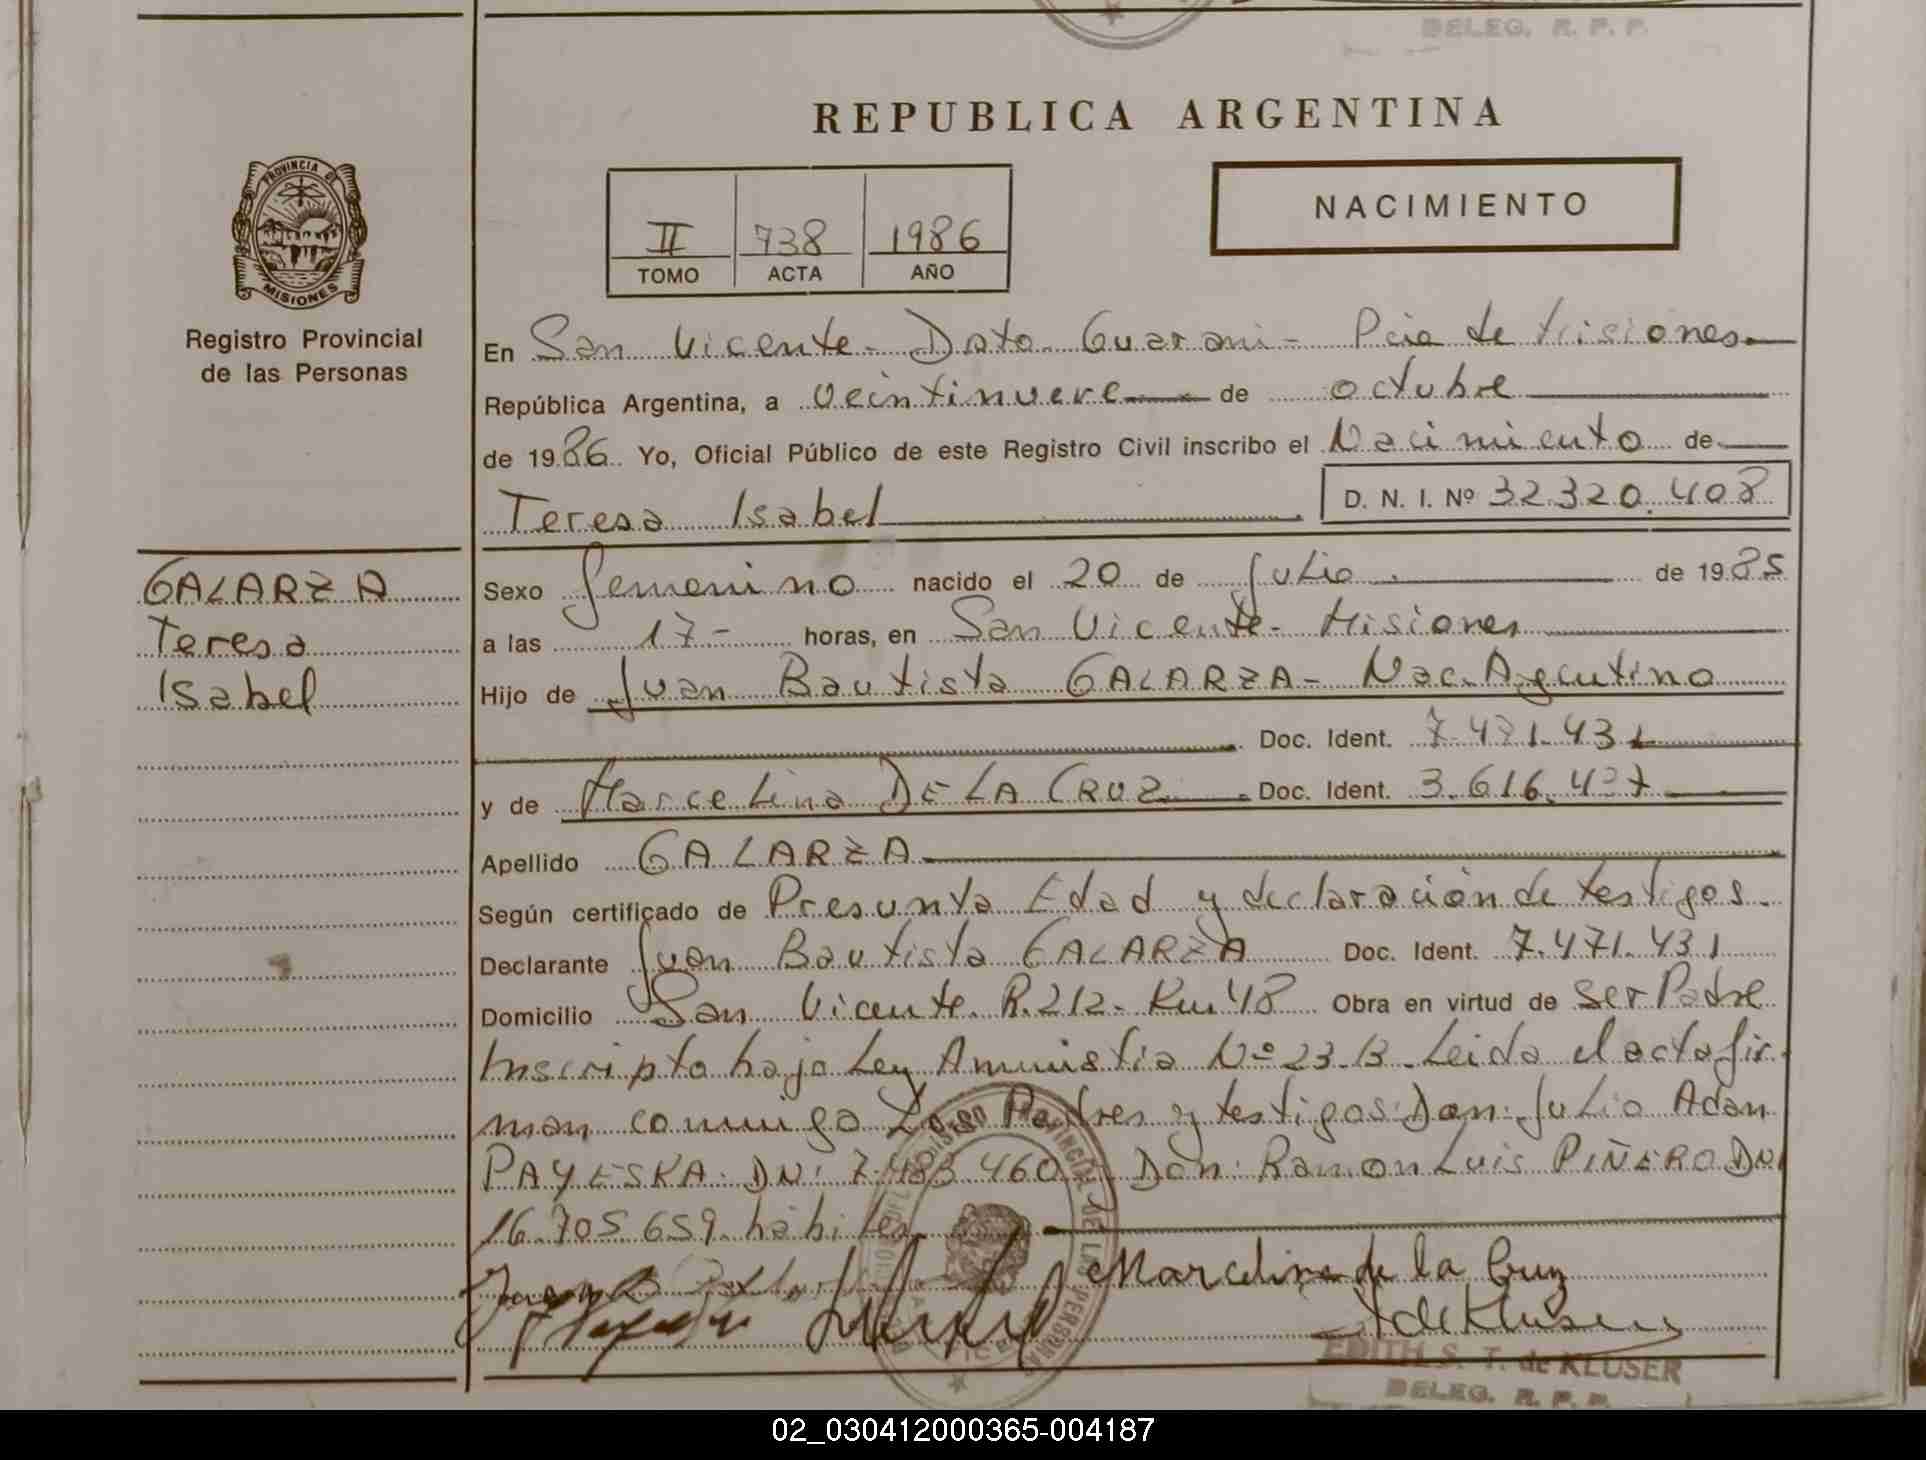 DELEG. R. P. P.
REPUBLICA ARGENTINA
PROVINCIA DE
MISIONES
Registro Provincial
de las Personas
II 738 1986
TOMO ACTA AÑO
NACIMIENTO
En San Vicente - Dpto. Guarani - Pcia de Misiones
República Argentina, a veintinueve de octubre
de 1986 Yo, Oficial Público de este Registro Civil inscribo el Nacimiento de
Teresa Isabel D. N. I. Nº 32.320.408
GALARZA
Teresa
Isabel
Sexo femenino nacido el 20 de Julio de 1985
a las 17- horas, en San Vicente - Misiones
Hijo de Juan Bautista GALARZA - Nac. Argentino
Doc. Ident. 7.471.431
y de Marcelina DE LA CRUZ Doc. Ident. 3.616.437
Apellido GALARZA
Según certificado de Presunta Edad y declaración de testigos.
Declarante Juan Bautista GALARZA Doc. Ident. 7.471.431
Domicilio San Vicente. R. 212 - Km 48 Obra en virtud de ser Padre
Inscripta bajo Ley Amnistia Nº 23.13. Leida el acta fir-
man conmigo Los Padres y testigos: Don: Julio Adan
PAYESKA. DNI 7.483.460 Don: Ramon Luis PIÑERO DNI
16.705.659. hábiles
Marcelina de la Cruz
EDITH S. T. de KLUSER
DELEG. R. P. P.
02_030412000365-004187